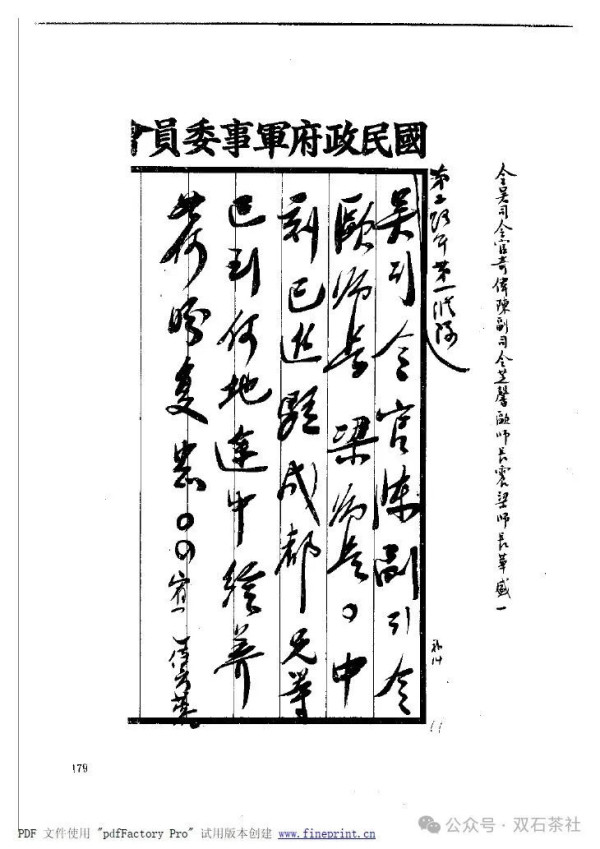 國民政府軍事委員會
令吳司令官奇偉陳副司令芝馨歐師長震梁師長華盛一
第二路軍第一縱隊
吳司令官陳副司令
歐師長梁師長。中
刻已進駐成都兄等
已到何地途中給養
如何盼复
179
PDF 文件使用 "pdfFactory Pro" 试用版本创建 www.fineprint.cn
公众号 · 双石茶社